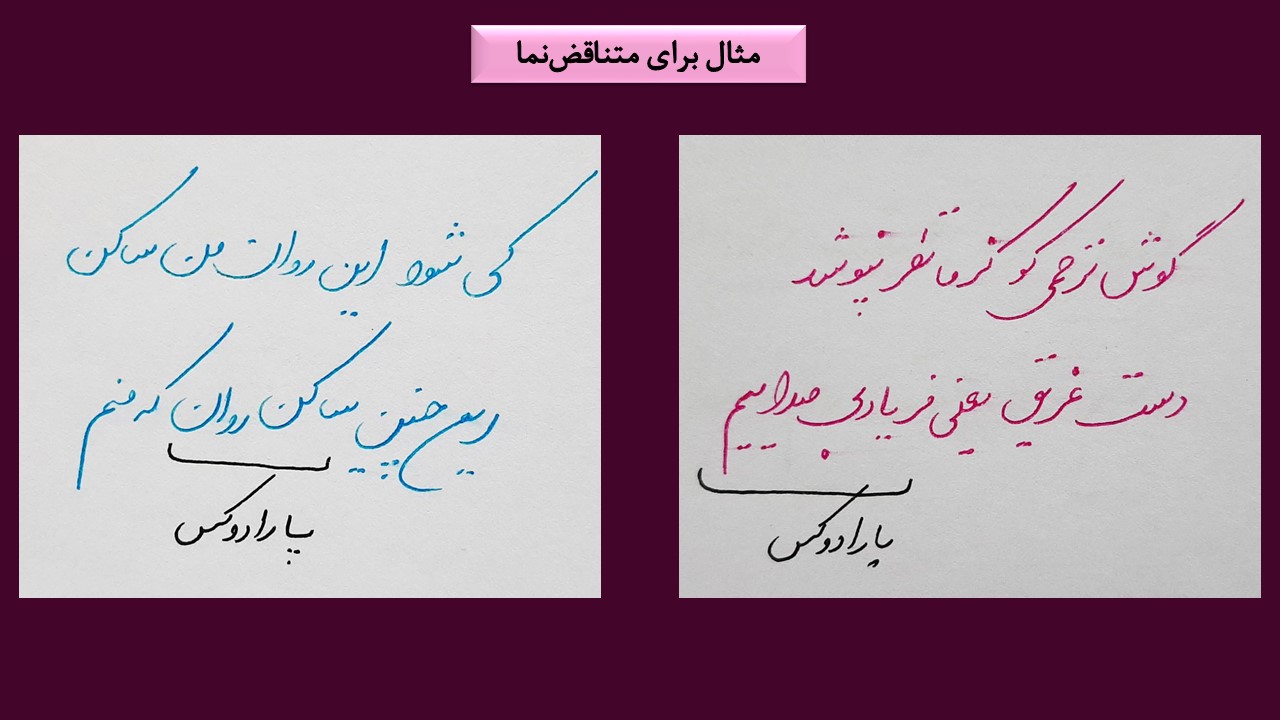 مثال برای متناقض‌نما
گوش ترحمی کو کز ما نظر نپوشد
دست غریق یعنی فریاد بی صداییم
پارادوکس
کی شود این روان من ساکن
این چنین ساکن روان که منم
پارادوکس